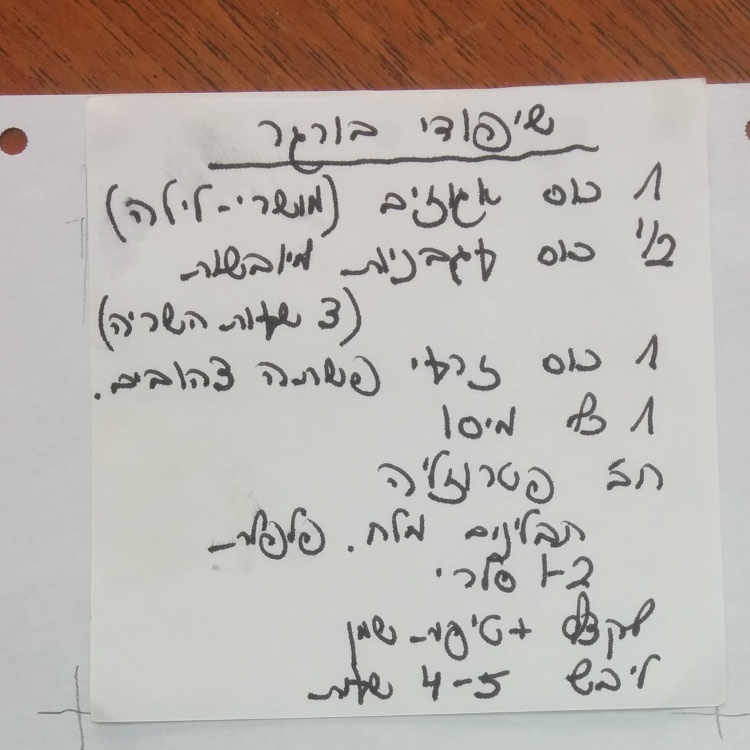 שיפודי בורגר
1 כוס אגוזים (מושרי-לילה)
1/2 כוס עגבניות מיובשות
(3 שעות השריה)
1 כוס זרעי פשתה צהובים.
1 כף מיסו
חב' פטרוזליה
תבלינים מלח. פלפל
1-2 סלרי
+ טיפת שמן
ליבש 4-5 שעות